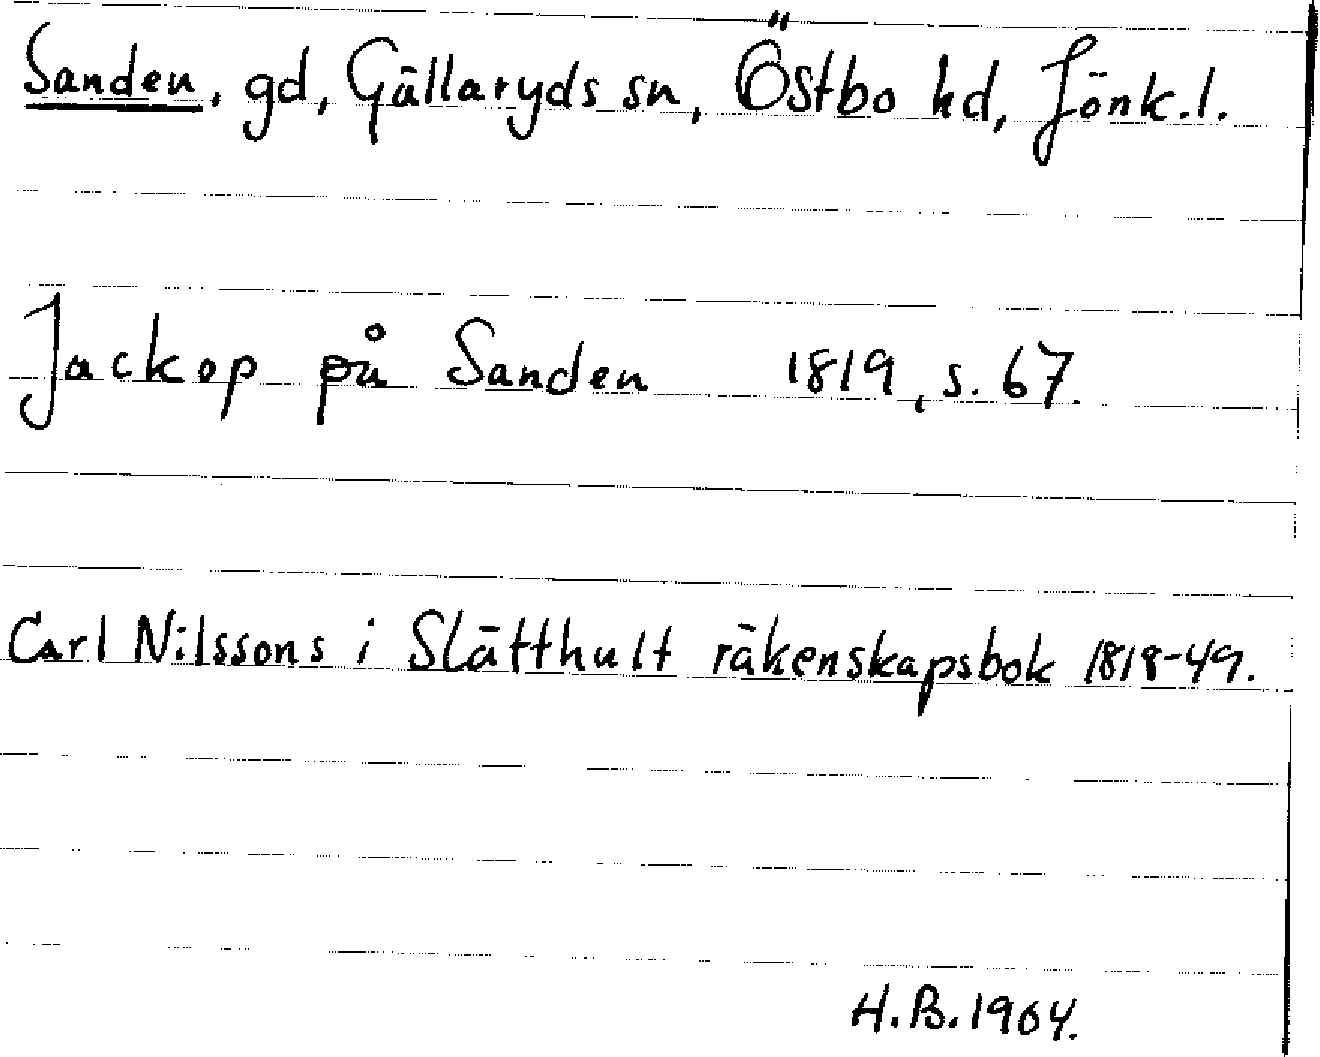 Sanden, gd, Gällaryds sn, Östbo hd, Jönk.l.
Jackop på Sanden 1819, s. 67.
Carl Nilssons i Slätthult räkenskapsbok 1818-49.
H.B. 1964.